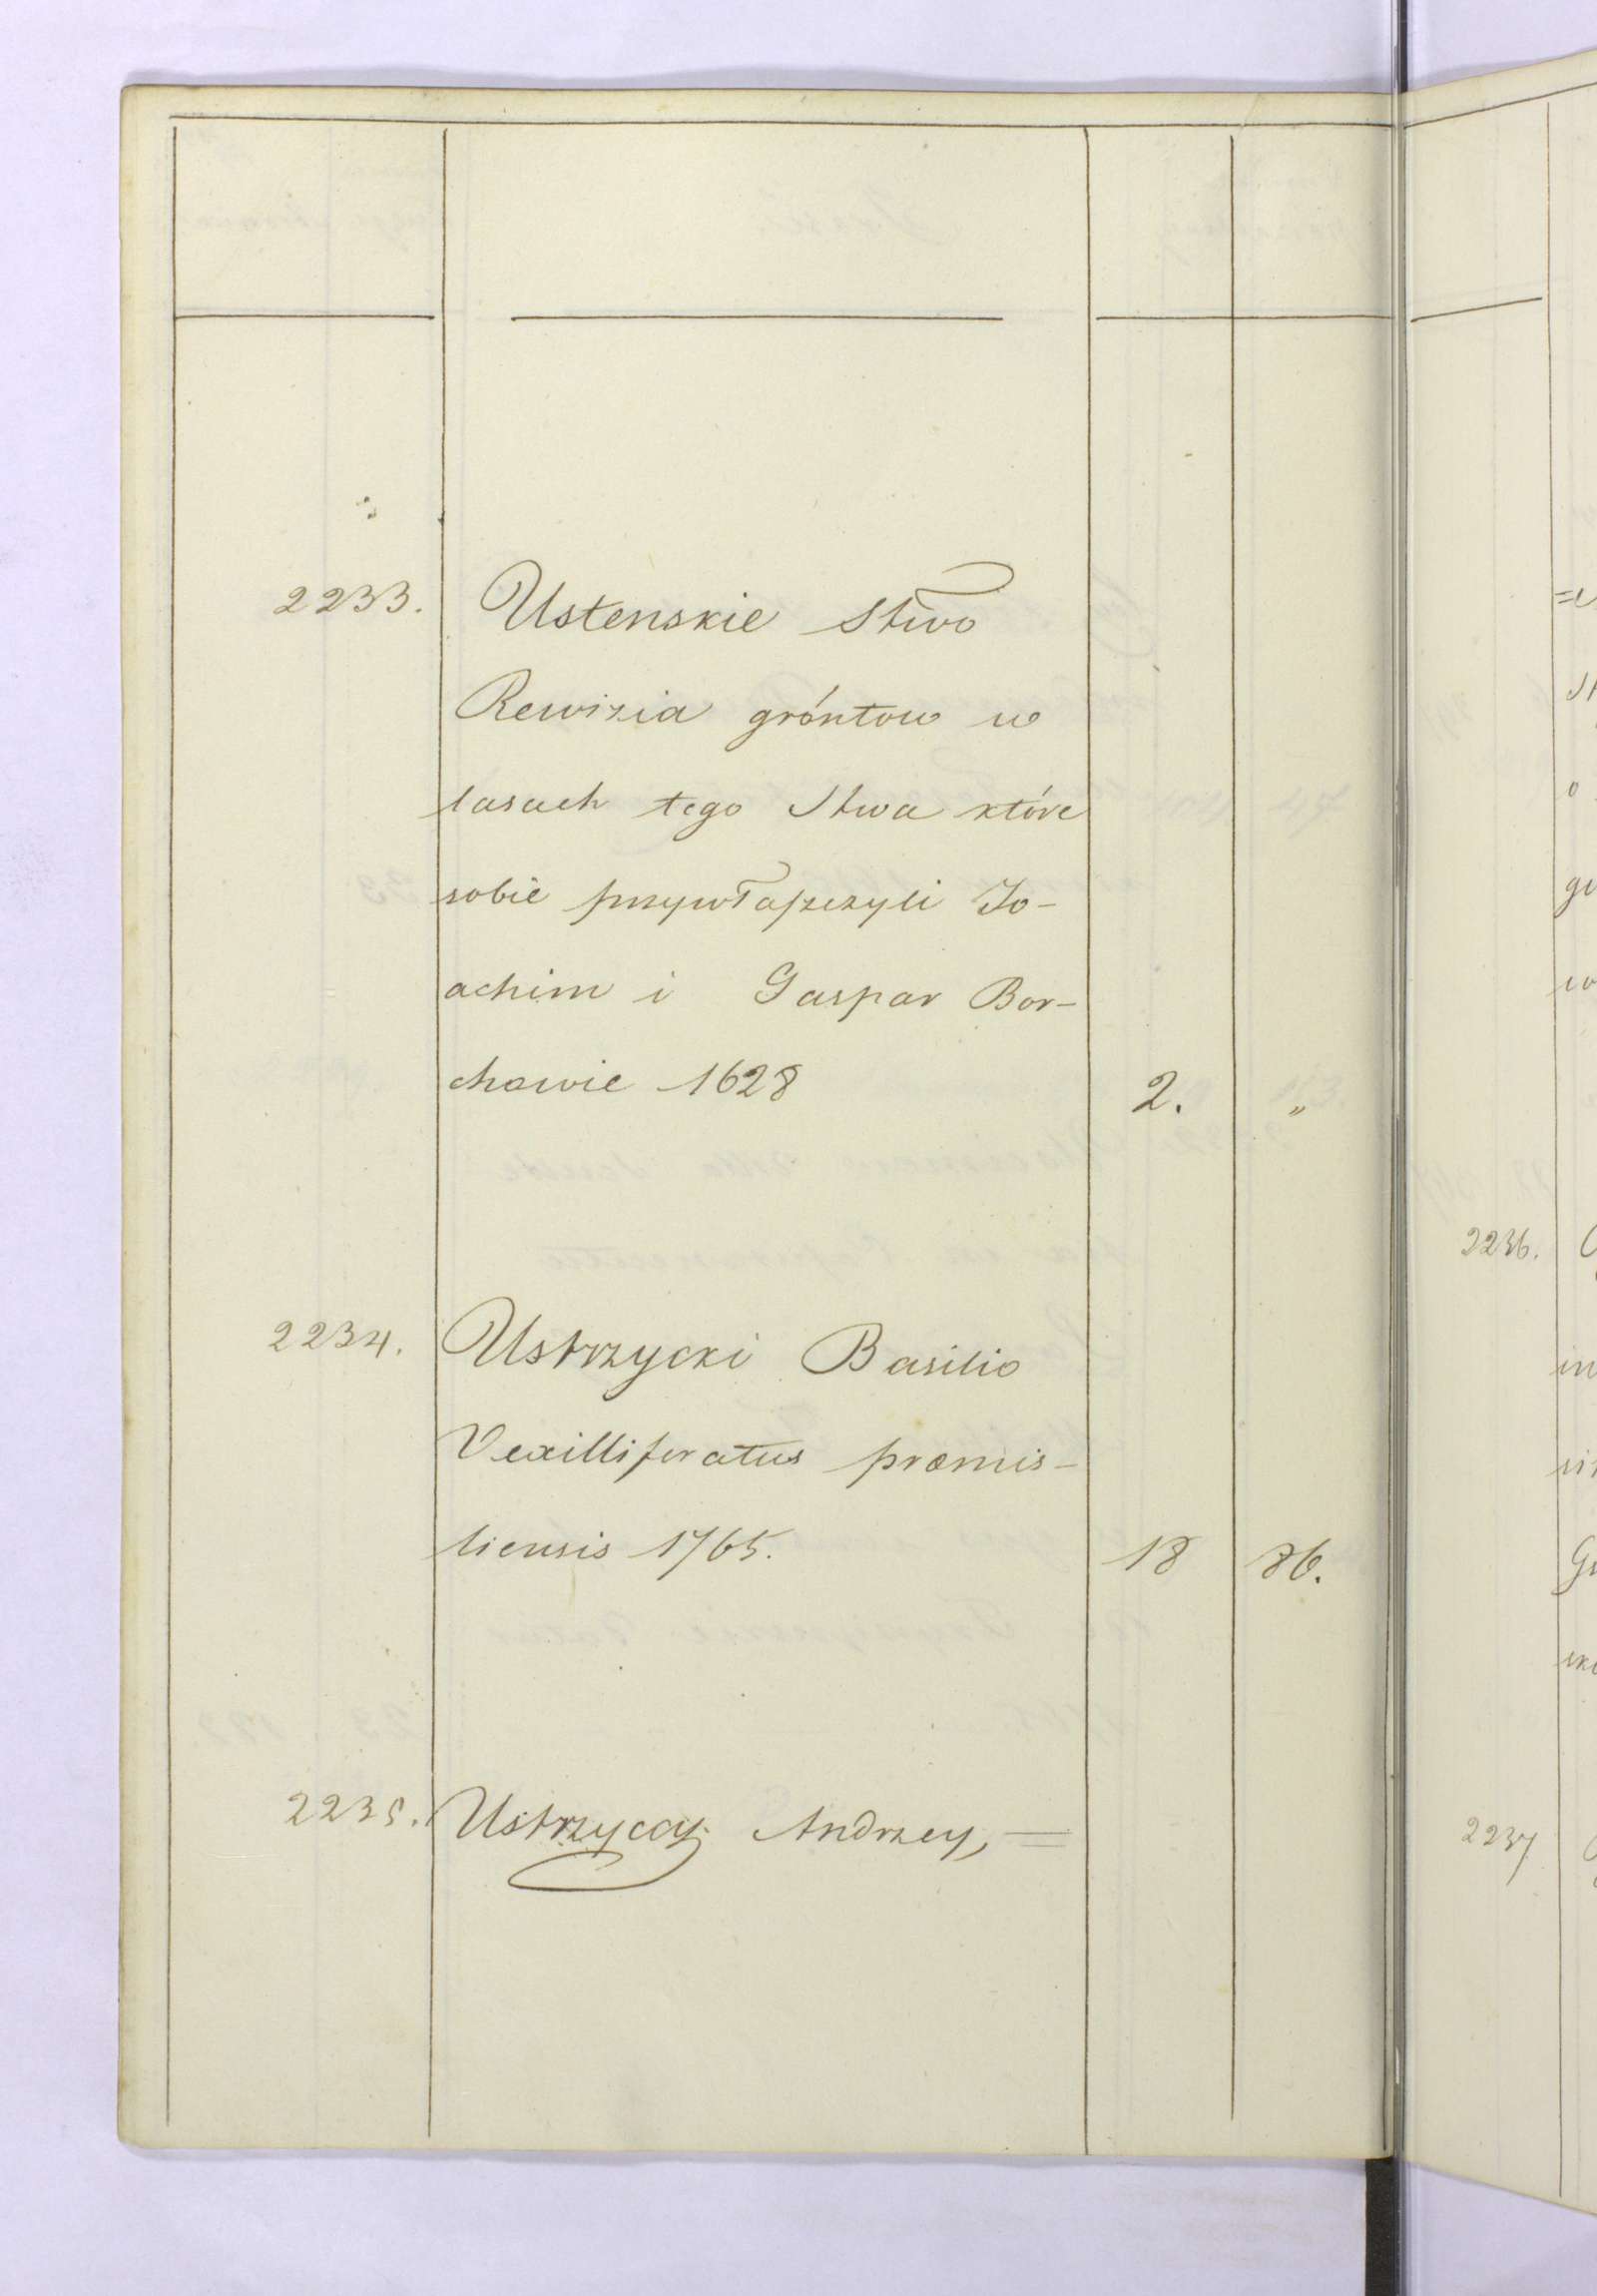 2233. Ustenskie Stwo
Rewizia gróntow w
lasach tego Stwa które
sobie przywłaszczyli Jo-
achim i Gaspar Bor-
chowie 1628 2. "
2234. Ustrzycki Basilio
Vexilliferatus præmis-
liensis 1765. 18 86.
2235. Ustrzyccy Andrzey, =
2236.
2237